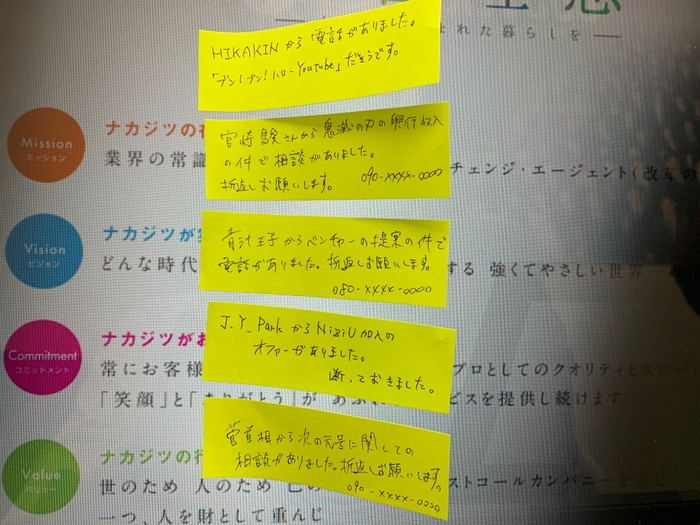 念
れた暮らしを
HIKAKINから電話がありました。
「ブンブン!ハローYoutube」だそうです。
Mission
ミッション
ナカジツの
業界の常識
チェンジ・エージェント(改革の
宮崎駿さんから鬼滅の刃の興行収入
の件で相談がありました。
折返しお願いします。 090-XXXX-0000
Vision
ビジョン
ナカジツが
どんな時代
する 強くてやさしい世界
青汁王子からベンチャーの提案の件で
電話がありました。折返しお願いします。
080-XXXX-0000
Commitment
コミットメント
ナカジツがお
常にお客様
プロとしてのクオリティとスピ
「笑顔」と「ありがとう」が あふ
ビスを提供し続けます
J.Y. ParkからNiziU加入の
オファーがありました。
断っておきました。
Value
バリュー
ナカジツの行
世のため 人のため
ストコールカンパニーを
一つ、人を財として重んじ
菅首相から次の元号に関しての
相談がありました。折返しお願いします。
090-XXXX-0000